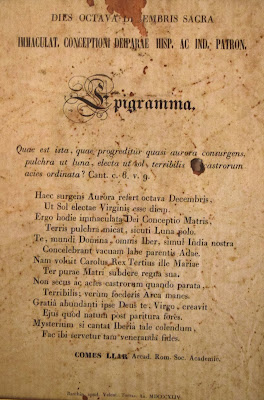 DIES OCTAVA DECEMBRIS SACRA
IMMACULAT. CONCEPTIONI DEIPARAE HISP. AC IND. PATRON.
Epigramma.
Quae est ista, quae progreditur quasi aurora consurgens,
pulchra ut luna, electa ut sol, terribilis ut castrorum
acies ordinata? Cant. c. 6, v. 9.
Haec surgens Aurora refert octava Decembris,
Ut Sol electae Virginis esse diem.
Ergo hodie immaculata Dei Conceptio Matris
Terris pulchra micat, sicuti Luna, polo.
Te, mundi Domina, omnis Iber, simul India nostra
Concelebrant vacuam labe parentis Adae.
Nam voluit Carolus Rex Tertius ille Mariae
Ter purae Matri subdere regna sua.
Non secus ac acies castrorum quando parata,
Terribilis; verum foederis Arca manes.
Gratiâ abundanti ipse Deus te, Virgo, creavit
Ejus quod natum post paritura fores.
Mysterium si cantat Iberia tale colendum,
Fac ibi servetur tam veneranda fides.
COMUS LLAR Accad. Rom. Soc. Academic.